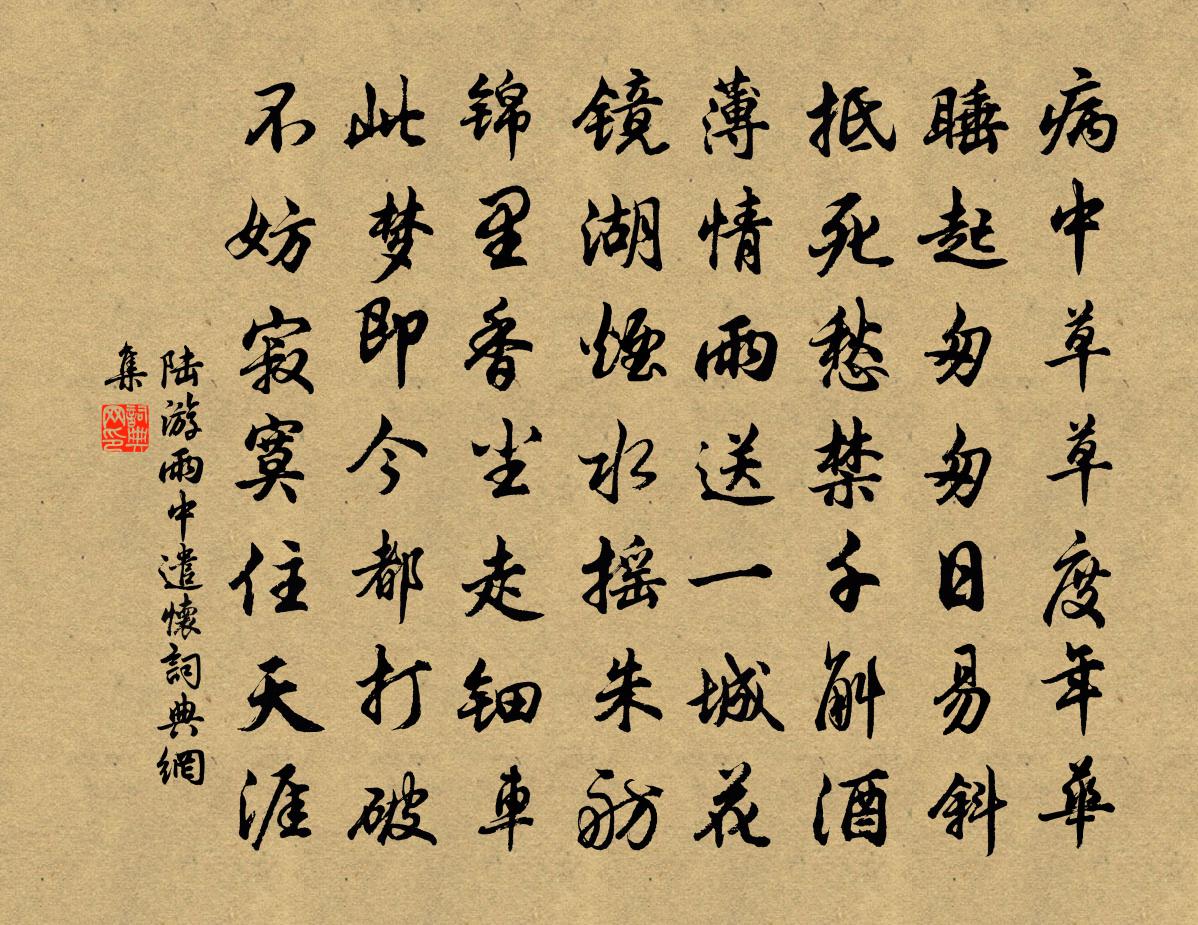 病中草草度年華
睡起匆匆日易斜
抵死愁禁千斛酒
薄情雨送一城花
镜湖煙水摇朱舫
锦里香尘走钿車
此梦即今都打破
不妨寂寞住天涯
陆游雨中遣懷詞典網
集
詞典
网印